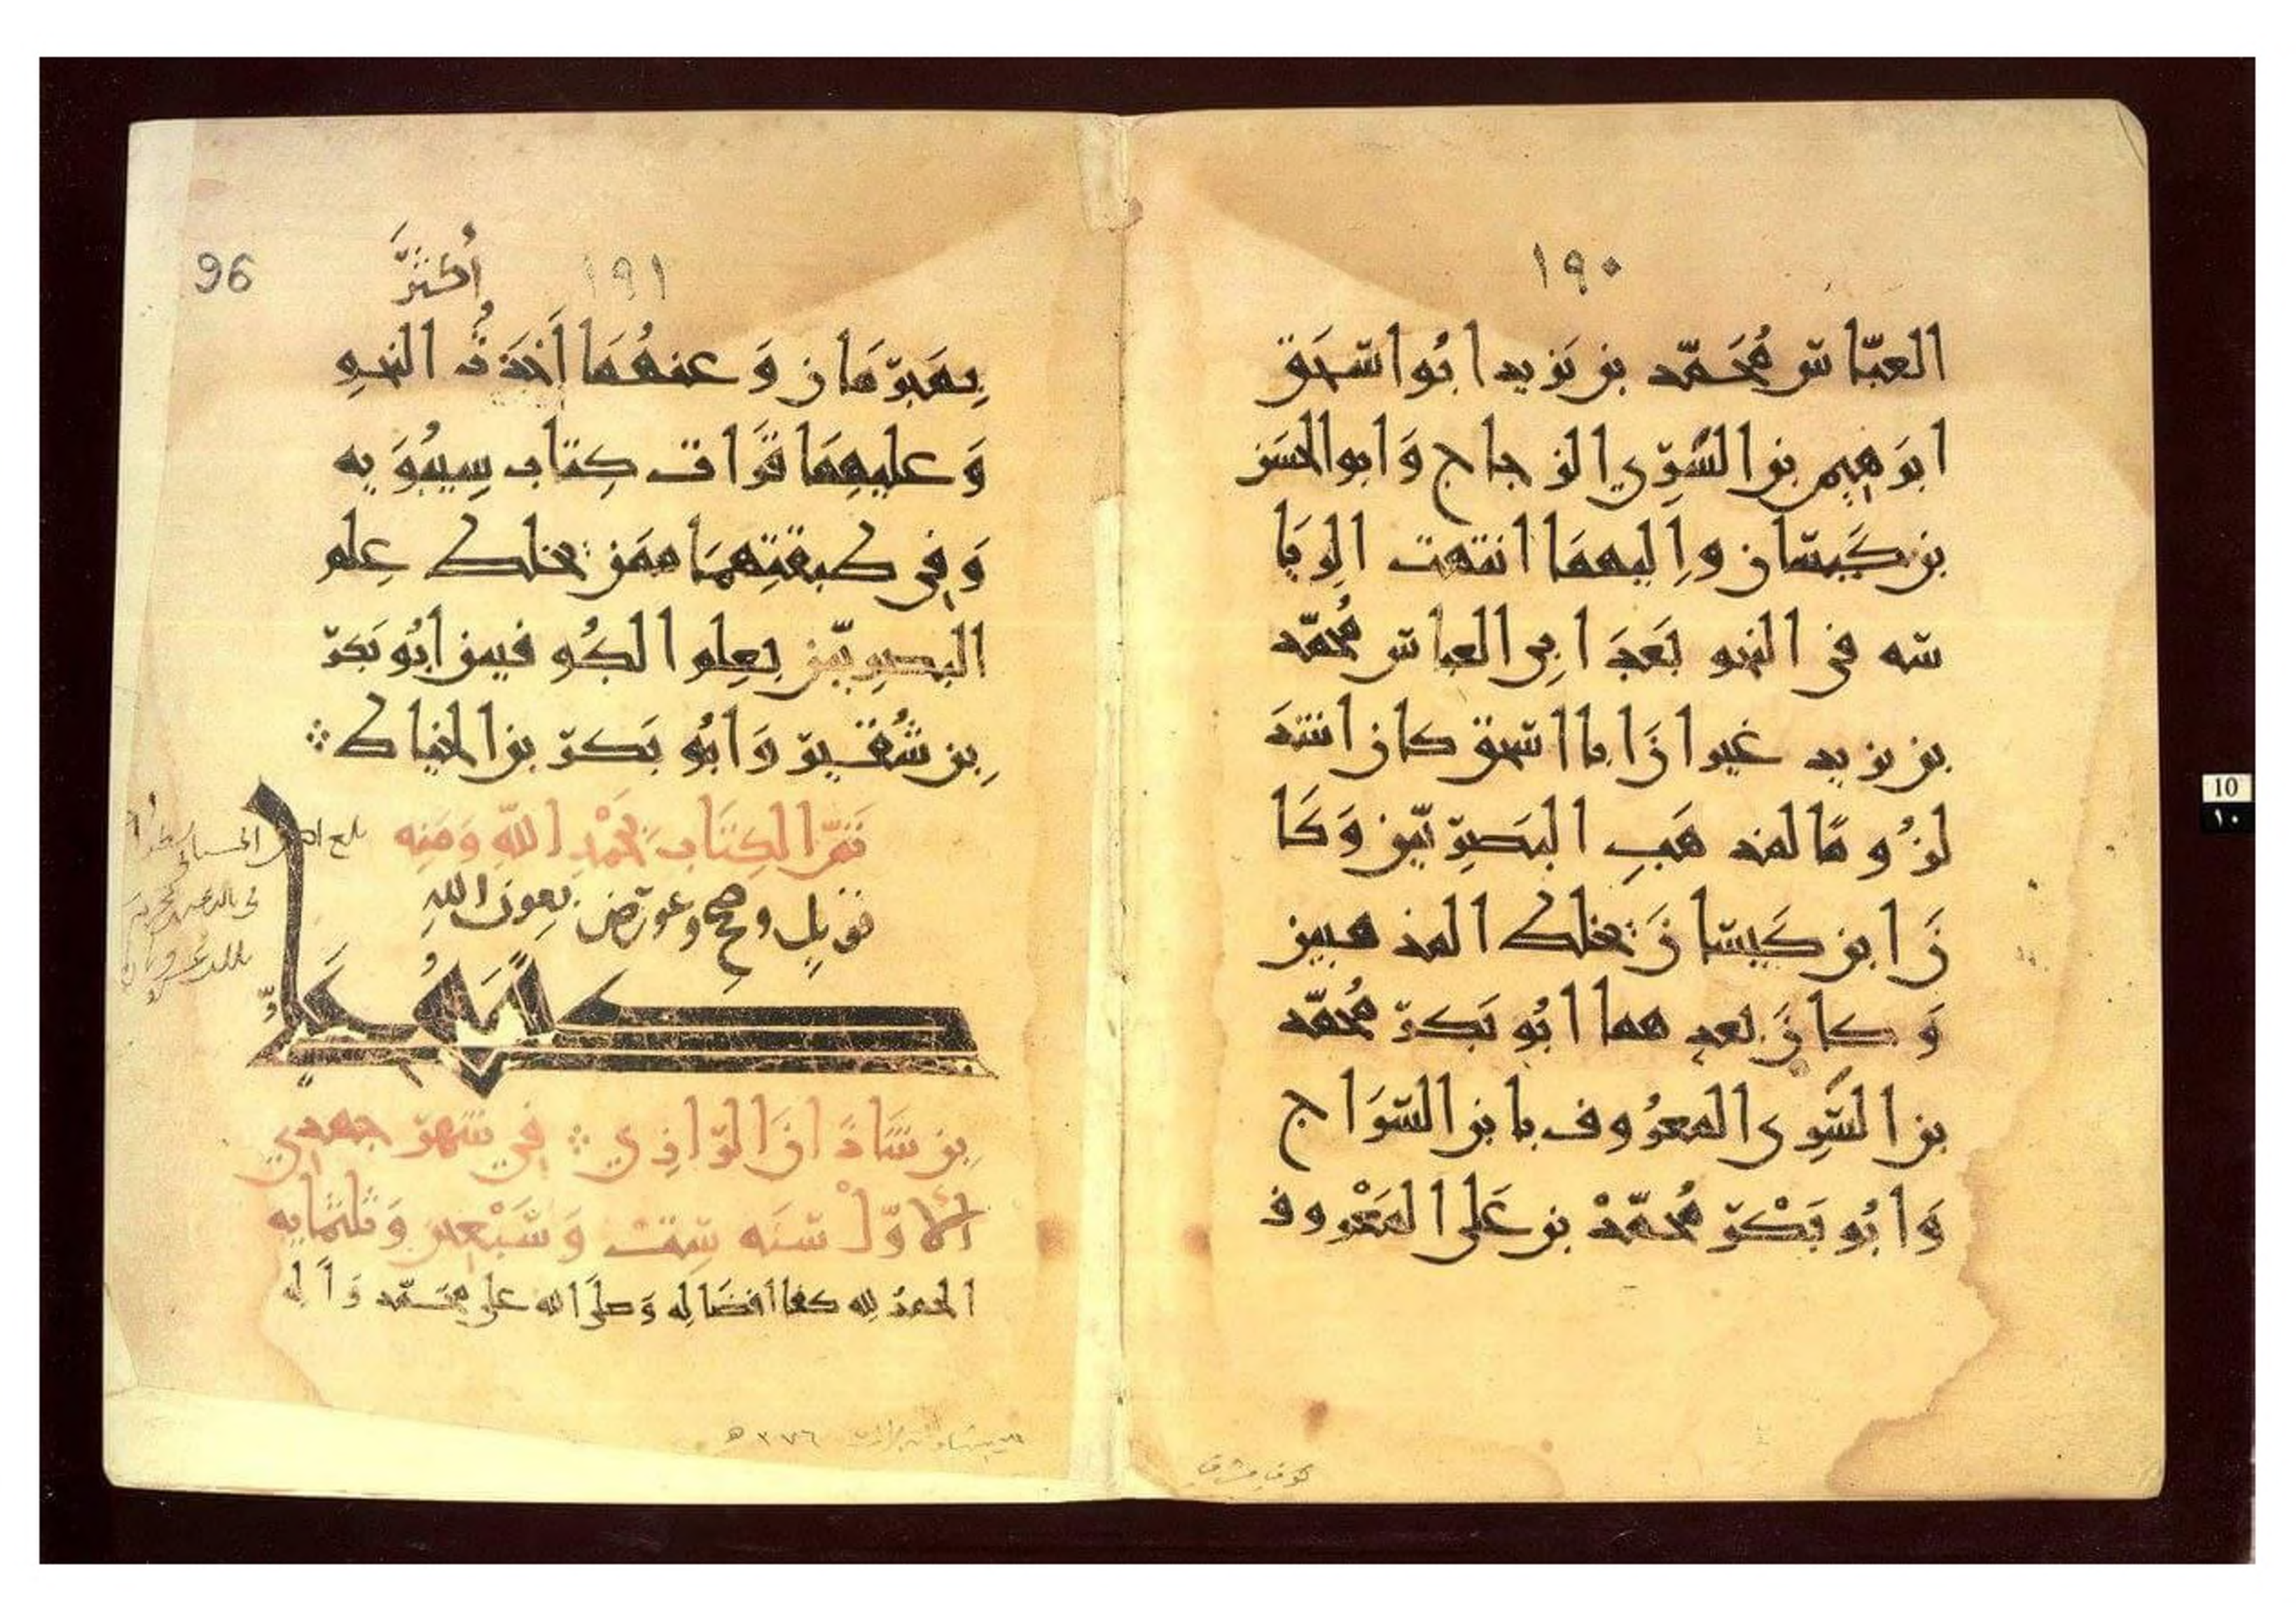 ١٩٠
العبّاس مُحَمّد بن يَزيد ابُو اسحَق
ابرَهيم بن السَّرِّي الزجاج وَابو الحسَن
بن كَيسَان واِليهمَا انتهت الرِيَا
سه في النحو بَعدَ ابِي العباس مُحمّد
بن يزيد غير انَّ ابا اسحق كان اشدَ
لزُومًا لمذهَبِ البَصرِيّين وَكَا
نَ ابن كَيسَانَ يخلط المذهبين
وَكانَ بعدهما ابُو بَكرٍ مُحمّد
بن السَّرِي المعرُوف بابن السّرَاج
وَابُو بَكْرٍ مُحمّدْ بن عَلي المَعْرُوف
96
١٩١
أكثرَ
بِمَبرَمَان وَعنهُمَا أَخَذتُ النحو
وَعليهِمَا قَرَات كِتاب سِيبُوَيه
وَفِي طبقتِهمَا ممَن يخلط عِلم
البصرِيّين بعِلم الكُوفيين ابُو بَكرٍ
بن شُقَيرٍ وَابُو بَكرٍ بن الخياط
تَمَّ الكِتَاب بِحَمْدِ اللّهِ وَمَنِه
قوبِل وصح وعورض بعون اللهِ
كتبهُ عليّ
بن شَاذَانَ الرّازِي في شَهرِ جمدي
الاوّلْ سَنَه سِت وَسَبْعين وَثلثمايه
الحمدُ لله كفا افضَالِه وَصلَّى الله على محَمّد وَآلِه
٣٧٦ ه
كوفي مشرقي
10
١٠